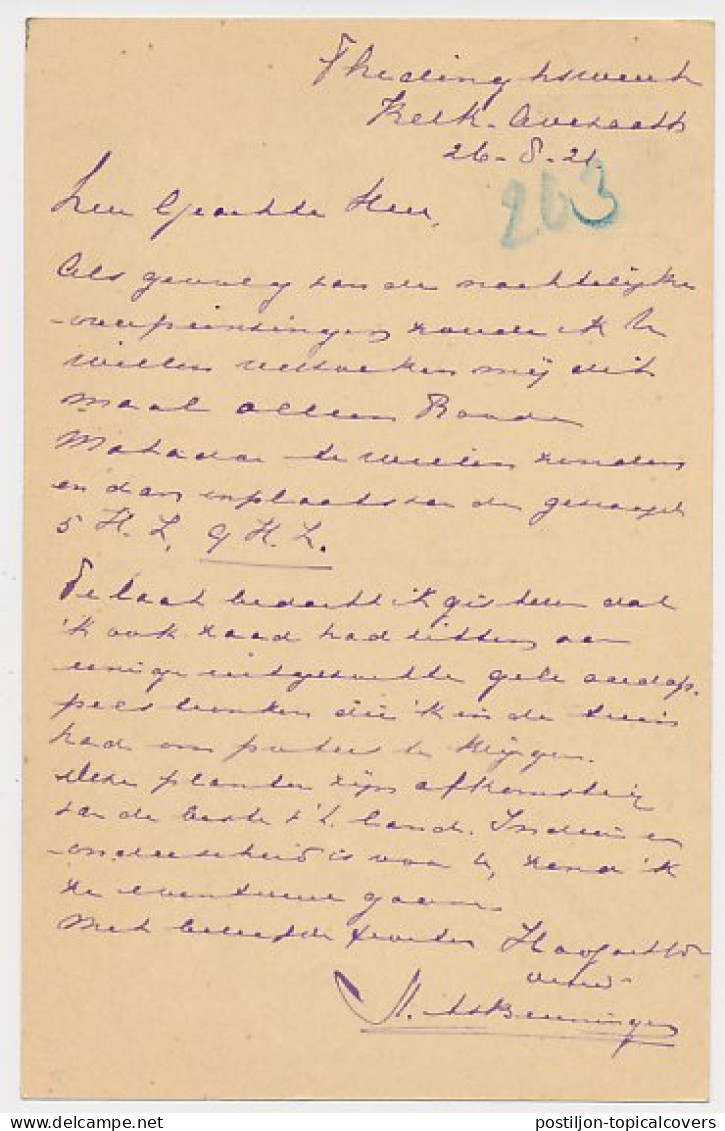 Thedinghsweert
Kerk-Avezaath
26-8-21
263
Zeer Geachte Heer,
Als gevolg van de nachtelijke
overpeinzingen zoude ik U
willen verzoeken mij dit
maal alleen Ronde
Matador te willen zenden
en dan inplaats van de gevraagde
5 H.L. 9 H.L.
Te laat bedacht ik gisteren dat
'k ook zaad had zitten aan
eenige uitgezochte gele aardap-
pelstronken die 'k in de tuin
had om poters te krijgen.
Deze planten zijn afkomstig
van de beste v/h. land. Indien er
onderscheid is voor U, zend 'k
ze eventueel gaarne
Met beleefde groeten Hoogachtend